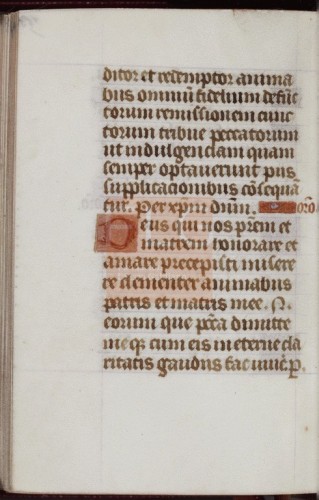 ditor et redemptor anima
bus omniū fidelium defūc
torum remissionem cunc
torum tribue peccatorum
ut indulgenciam quam
semper optauerunt piis
supplicacionibus cōsequā
tur. Per xp̄m dn̄m. orō
Deus qui nos pr̄em et
matrem honorare et
amare precepisti misere
re clementer animabus
patris et matris mee. N.
eorum que pc̄ca dimitte
me qꝫ cum eis in eterne cla
ritatis gaudiis fac uiuē p̱.